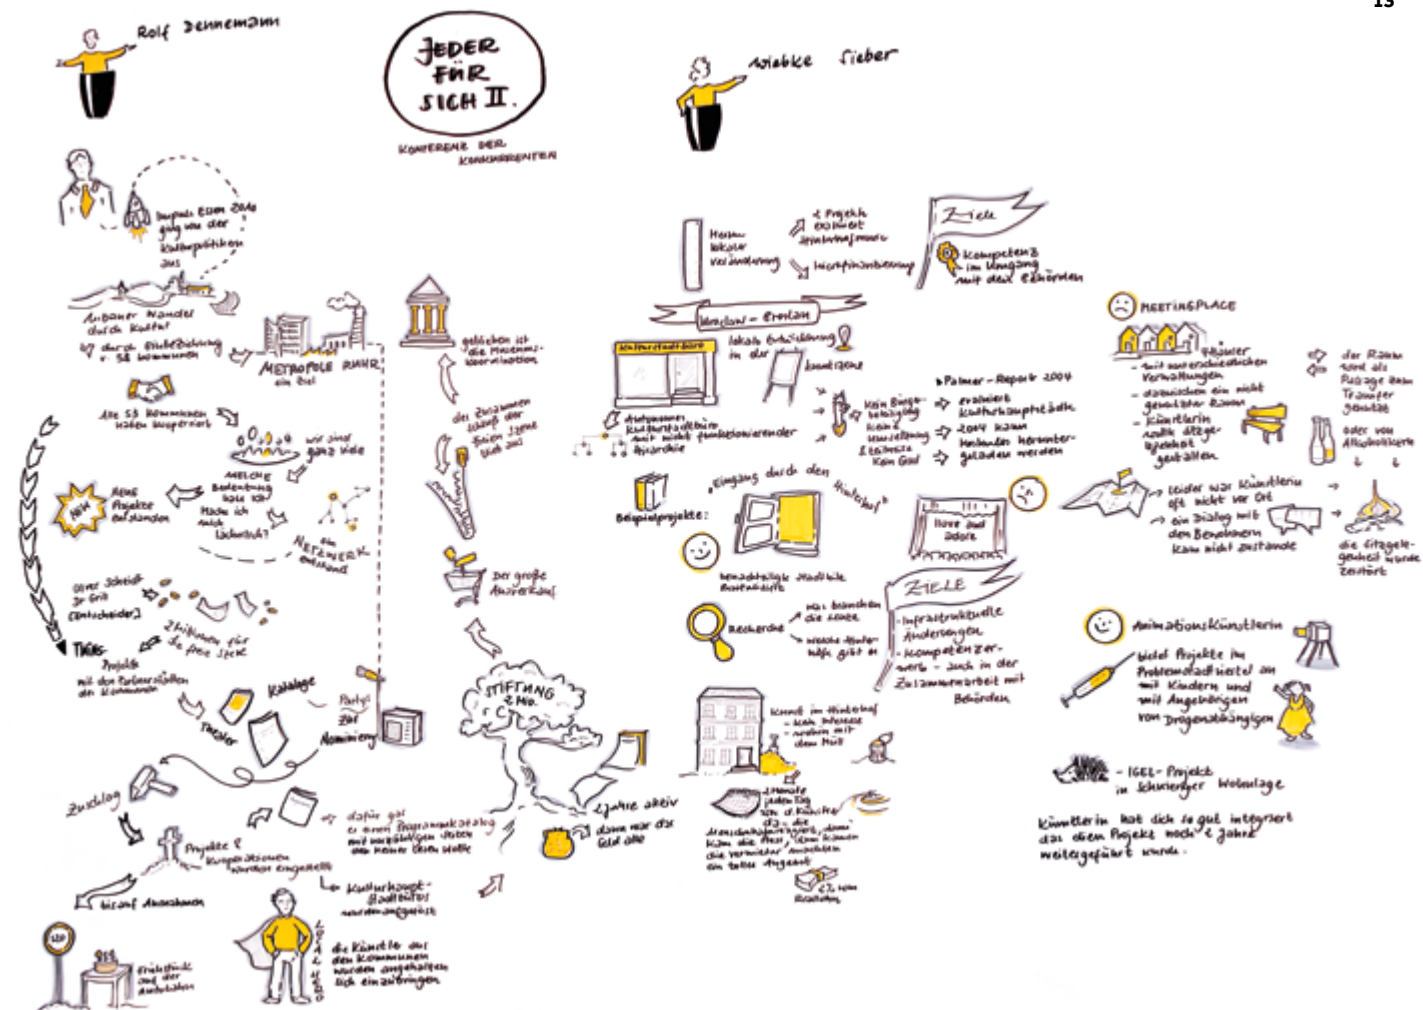 13
Rolf Dennemann
JEDER
FÜR
SICH II.
KONFERENZ DER
KONKURRENTEN
Wiebke Sieber
Impuls Essen 2010
ging von der
Kulturpolitiken
aus
Urbaner Wandel
durch Kultur
durch Einbeziehung
v. 53 Kommunen
METROPOLE RUHR
ein Ziel
Alle 53 Kommunen
haben kooperiert
wir sind
ganz viele
WELCHE
Bedeutung
habe ich?
Mache ich
mich
lächerlich?
NEU
Neue
Projekte
entstanden
ein
NETZWERK
entstand
Oliver Scheidt
[Entscheider]
2 Millionen für
die freie Szene
TWINS-
Projekte
mit den Partnerstädten
der Kommunen
Theater
Kataloge
Party
zur
Nominierung
Zuschlag
Projekte &
Kooperationen
wurden eingestellt
bis auf Ausnahmen
dafür gab
es einen Programmkatalog
mit unzähligen Seiten
den keiner lesen wollte
Kulturhaupt-
stadtbüros
wurden aufgelöst
Frühstück
auf der
Autobahn
LOCAL HERO
die Künstler aus
den Kommunen
wurden angehalten
sich einzubringen
geblieben ist
die Museums-
koordination
der Zusammen
schluß der
freien Szene
blieb aus
Der große
Ausverkauf
STIFTUNG
2 Mio.
2 Jahre aktiv
dann war das
Geld alle
lokaler
Veränderung
2 Projekte
evaluiert
Mischfinanzierung
Ziele
Kompetenz
im Umgang
mit den Behörden
Wroclaw - Breslau
Kulturstadtbüro
lokale Entwicklung
in der
Kunstszene
Autonomes
Kulturstadtbüro
mit nicht funktionierender
Hierarchie
Kein Bürger-
beteiligung
keine
Umsetzung
& teilweise
Kein Geld
Palmer-Report 2004
evaluiert
Kulturhauptstädte
2004 kann
runterladen herunter-
geladen werden
Beispielprojekte:
"Eingang durch den Hinterhof"
benachteiligte Stadtteile
Recherche
was brauchen
die Leute
welche Hinter-
höfe gibt es
love and
adore
ZIELE
- Infrastruktuelle
Änderungen
- Kompetenzer-
werb - auch in der
Zusammenarbeit mit
Behörden
Kunst im Hinterhof
- kein Interesse
- wohin mit
dem Müll
2 Monate
jeden Tag
kam die Presse, dann kamen
die Vermieter machten
ein tolles Angebot
MEETINGPLACE
4 Häuser
- mit unterschiedlichen
Verwaltungen
- dazwischen ein nicht
genutzter Raum
- Künstlerin
wollte Sitzge-
legenheit
gestalten
der Raum
wird als
Passage zum
Transfer
genutzt
oder von
Alkoholikern
leider war Künstlerin
oft nicht vor Ort
ein Dialog mit
den Bewohnern
kam nicht zustande
die Sitzgele-
genheit wurde
zerstört
Animationskünstlerin
bietet Projekte im
Problemstadtviertel an
mit Kindern und
mit Angehörigen
von Drogenabhängigen
- IGEL-Projekt
in schwieriger Wohnlage
Künstlerin hat sich so gut integriert
das dem Projekt noch 2 Jahre
weitergeführt wurde.